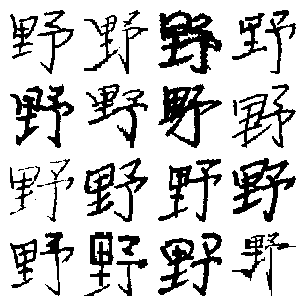 野野野野
野野野野
野野野野
野野野野